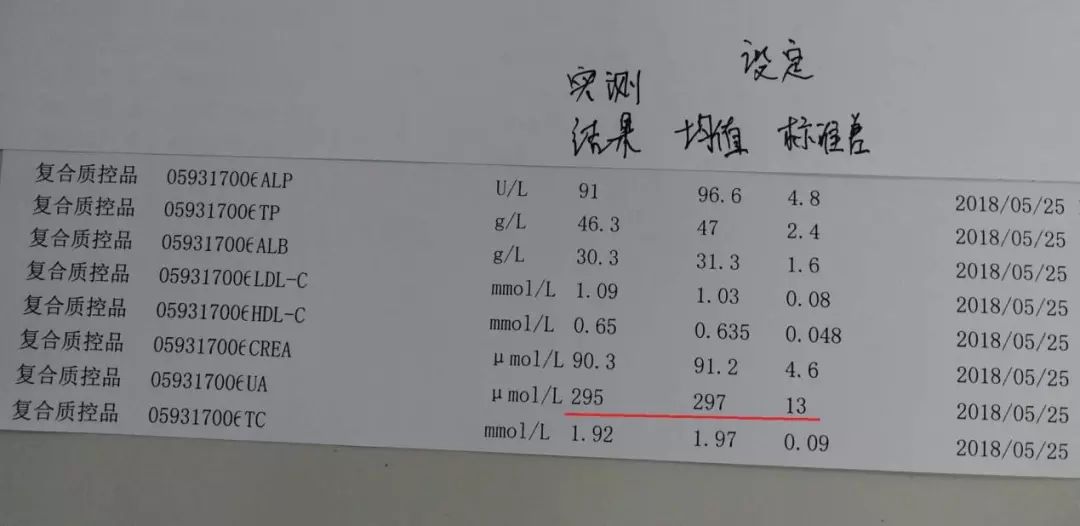 设定
实测
结果 均值 标准差
复合质控品 05931700€ALP U/L 91 96.6 4.8 2018/05/25
复合质控品 05931700€TP g/L 46.3 47 2.4 2018/05/25
复合质控品 05931700€ALB g/L 30.3 31.3 1.6 2018/05/25
复合质控品 05931700€LDL-C mmol/L 1.09 1.03 0.08 2018/05/25
复合质控品 05931700€HDL-C mmol/L 0.65 0.635 0.048 2018/05/25
复合质控品 05931700€CREA μmol/L 90.3 91.2 4.6 2018/05/25
复合质控品 05931700€UA μmol/L 295 297 13 2018/05/25
复合质控品 05931700€TC mmol/L 1.92 1.97 0.09 2018/05/25